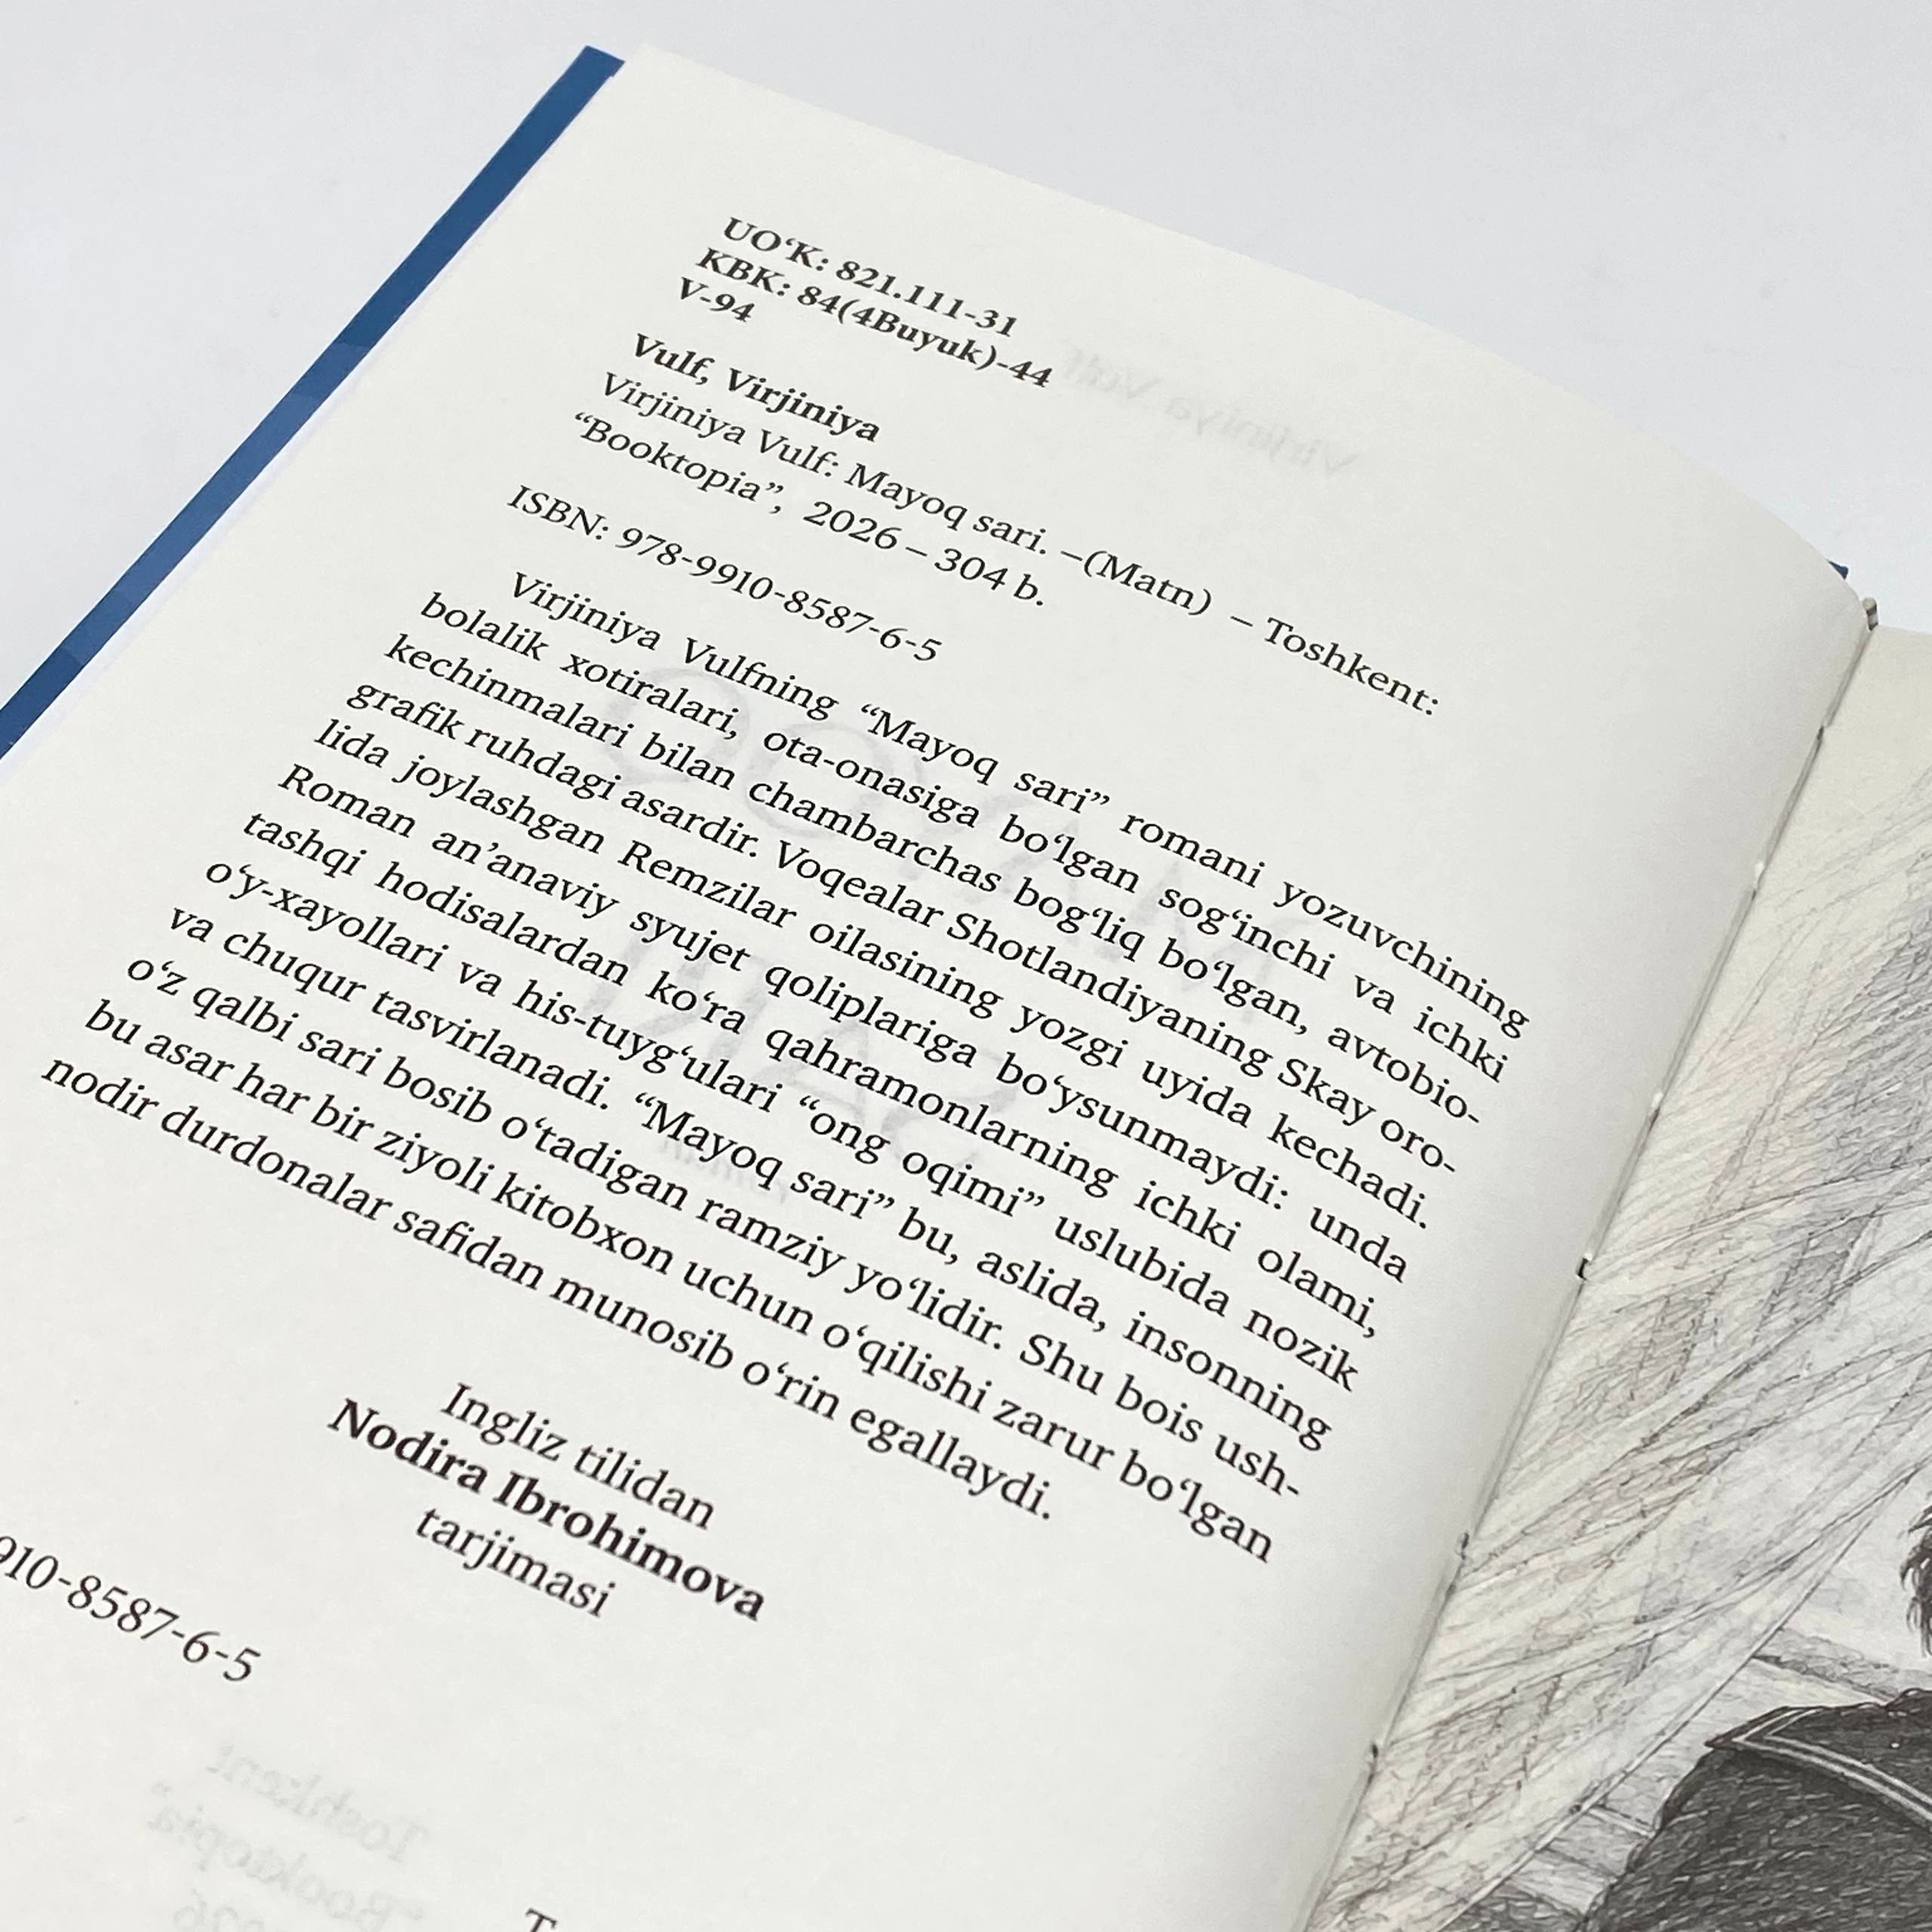 UO‘K: 821.111-31
KBK: 84(4Buyuk)-44
V-94
Vulf, Virjiniya
Virjiniya Vulf: Mayoq sari. –(Matn) – Toshkent:
“Booktopia”, 2026 – 304 b.
ISBN: 978-9910-8587-6-5
Virjiniya Vulfning “Mayoq sari” romani yozuvchining
bolalik xotiralari, ota-onasiga bo‘lgan sog‘inchi va ichki
kechinmalari bilan chambarchas bog‘liq bo‘lgan, avtobio-
grafik ruhdagi asardir. Voqealar Shotlandiyaning Skay oro-
lida joylashgan Remzilar oilasining yozgi uyida kechadi.
Roman an’anaviy syujet qoliplariga bo‘ysunmaydi: unda
tashqi hodisalardan ko‘ra qahramonlarning ichki olami,
o‘y-xayollari va his-tuyg‘ulari “ong oqimi” uslubida nozik
va chuqur tasvirlanadi. “Mayoq sari” bu, aslida, insonning
o‘z qalbi sari bosib o‘tadigan ramziy yo‘lidir. Shu bois ush-
bu asar har bir ziyoli kitobxon uchun o‘qilishi zarur bo‘lgan
nodir durdonalar safidan munosib o‘rin egallaydi.
Ingliz tilidan
Nodira Ibrohimova
tarjimasi
910-8587-6-5